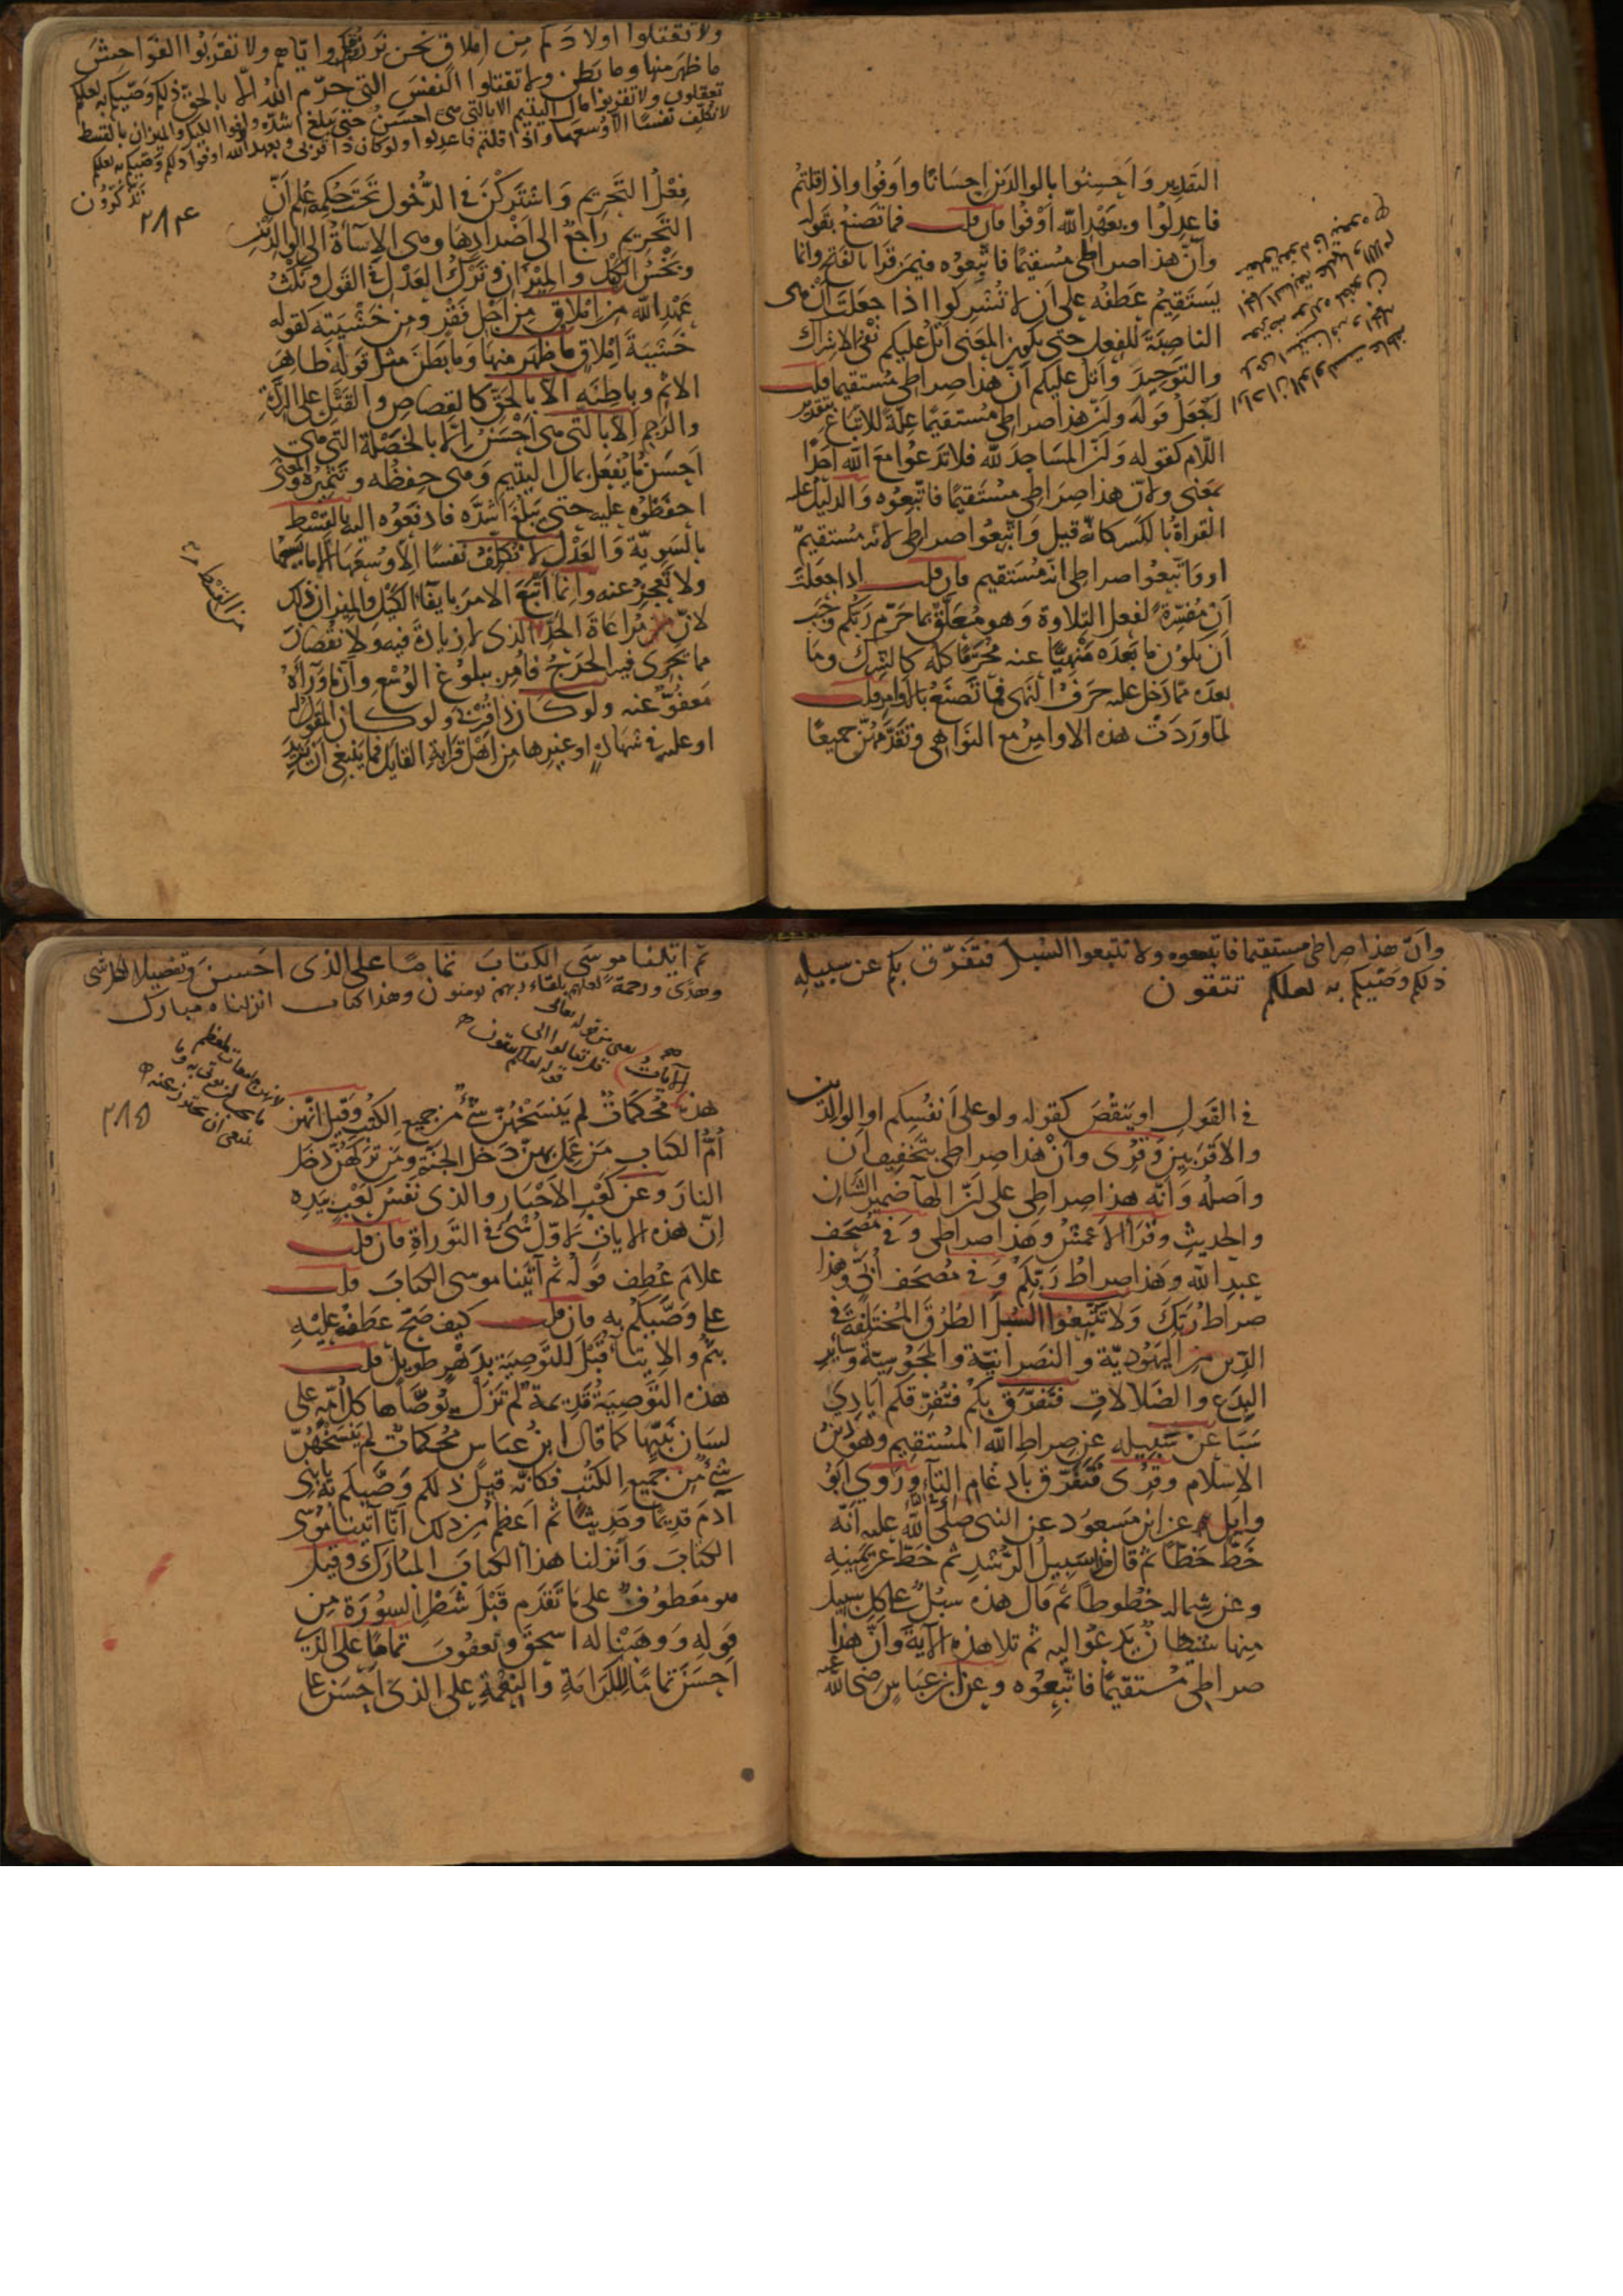 التقدير وَاَحسِنُوا بالوالدَين اِحسَانًا وَاَوفُوا واذا قلتم
فاعدِلُوا وبعَهْدِ اللّه اَوْفُوا فان قلت فما تصنعُ بقوله
وَاَنَّ هذا صراطى مُستقيمًا فاتَّبِعُوه فيمَن قَرَا بالفَتح وانما
يَستَقِيمُ عَطفُه على اَن لا تُشركوا اذا جعَلتَ اَن هى
الناصِبَةَ للفِعل حتى يكون المعنى اَتلُ عليكم نَفىَ الاشراك
والتَوحِيدَ وَاَتلُ عليكم اَنّ هذا صراطى مُستقيما قلت
اَجْعَلُ قوله وَاَنّ هذا صراطى مُستقيمًا عِلّةً للاتباع بتقدير
اللّام كقوله وَاَنّ المَسَاجدَ للّه فلا تَدعُوا معَ اللّه اَحدًا
بمَعنى ولانّ هذا صِرَاطِى مُستَقيمًا فاتّبِعُوه وَالدليلُ عليه
القراةُ بالكسر كانّه قيل وَاتّبِعُوا صراطى لانّه مُستقيمٌ
او وَاتّبِعُوا صراطى انه مُستَقيم فان قلت اذا جعَلتَ
اَن مُفسّرةً لفعل التِلاوة وَهو مُعَلَّقٌ بما حَرّم رَبّكم وَجَبَ
اَن يكون ما بَعدَه مَنهيًّا عنه مُحرَّمًا كلّه كالشرك وما
بعدَه ممّا دَخل عليه حَرفُ النَهى فمَا تَصنَعُ بالاَوامِر قلت
لمّا وَرَدَت هذه الاوامِرُ مع النَوَاهى وتَقَدَّمَهُنّ جميعًا
ولا تقتلوا اولادكم مِن اِملاقٍ نحن نرزقكم واِيّاهم ولا تقرَبُوا الفَوَاحِشَ
ما ظهَر منها وما بَطن ولا تقتلوا النفسَ التى حرّم اللّهُ الّا بالحق ذلكم وَصّيكم به لعلكم
تعقلون ولا تقربوا مال اليتيم الا بالتى هى احسَنُ حتى يبلغ اشدّه واوفوا الكيل والميزان بالقسط
لا نكلّف نفسًا الا وُسعَها واذا قلتم فاعدِلوا ولو كان ذا قربى وبعهد اللّه اوفوا ذلكم وصّيكم به لعلكم
تذكرون
٢٨٤
فِعْلُ التَحرِيم وَاشتَركنَ فى الدُّخول تَحتَ حُكمِه عُلِم اَنّ
التَحرِيمَ رَاجعٌ الى اَضدَادِهَا وهى الاِسآءَةُ الى الوالدَين
وبَخسُ الكَيل والمِيزان وتَركُ العَدل فى القَول ونَكثُ
عَهْدِ اللّه من اِملاقٍ من اَجل فَقْرٍ ومِن خَشْيَته لقوله
خَشيَةَ اِملاقٍ ما ظهَر منها وَمَا بَطَنَ مثل قوله ظاهِرَ
الاثم وباطِنَه اِلّا بالحَقّ كالقصاص والقَتْل على الرِدّة
والرَجم اِلّا بالتى هى اَحْسَنُ اِلّا بالخَصْلة التى هى
اَحسَنُ ما يُفعَل بمال اليتيم وهى حِفظُه وتَثمِيرُه والمَعنى
احفَظُوه عليه حتى يَبلُغَ اَشُدّه فادفَعُوه اليه بالقِسْط
بالسَوِيّة وَالعَدْل لا نُكَلّفُ نَفسًا اِلّا وُسعَهَا الّا ما يَسَعُها
ولا تَعجِزُ عنه وانما اَتبَعَ الامرَ بايفآءِ الكَيل والميزان ذلك
لانّ مُرَاعَاةَ الحَدّ الذى لا زيادةَ فيه ولا نُقصَانَ
مما يَجرى فيه الحَرَجُ فاُمِر ببلوغ الوُسْع وانّ ما ورآءَهُ
مَعفُوٌّ عنه ولو كان ذا قُربى ولو كان المقُولُ له
او عليه فى شهادةٍ او غيرها من اَهل قَرابة القائل فما يَنبغى اَن يَزيدَ
وانّ هذا صراطى مستقيما فاتبعوه ولا تتبعوا السُبلَ فتَفرّق بكم عن سبيله
ذلكم وصّيكم به لعلكم تتقون
فى القَول او يَنقُصَ كقوله ولو على اَنفُسِكم او الوالدَين
والاَقرَبِينَ وقُرِى وَاَنْ هذا صراطى بتَخفِيف اَن
وَاَصلُه وَاَنّه هذا صراطى على اَنّ الهآءَ ضميرُ الشان
والحديث وقَرَا الاَعمَش وهذا صراطى وفى مُصحَف
عبدِ اللّه وهَذا صراطُ رَبّكم وفى مُصحَف اُبَىّ وهذا
صراط رَبّكَ وَلا تَتّبِعُوا السُبلَ الطُرُقَ المُختَلِفةَ فى
الدّين من اليَهُوديّة والنَصرانيّة والمَجُوسيّة وسائر
البِدَع والضَلالات فتَفرّقَ بكم فتُفرّقكم اَيادِى
سَبَا عَن سَبِيله عن صراط اللّه المُستَقِيم وهو دينُ
الاِسلام وقُرى فتَّفَرّق بادغام التآء ورَوى اَبُو
وايل عن ابن مَسعود عن النبى صلى اللّه عليه اَنّه
خَطَّ خطّا ثم قال هذا سبِيلُ الرُشْدِ ثم خَطّ عن يَمينِه
وعن شِماله خُطوطًا ثم قال هذه سُبُلٌ على كل سبيل
منها شَيطانٌ يَدعُوا اليه ثم تلا هذه الآيةَ وَاَنَّ هذا
صراطى مُستَقيمًا فاتّبِعُوه وعن ابن عبّاسٍ رضى اللّه عنه
ثم اتينا موسَى الكتابَ تمامًا على الذى احسنَ وتفصيلا لكل شى
وهدًى ورحمةً لعلهم بلقاء ربهم يومنون وهذا كتاب انزلناه مبارك
الآيات
يعنى من قوله تعالى
قل تعالوا الى
قوله لعلكم تتقون
٢٨٥
هذه مُحكمَاتٌ لم يَنسَخهُنّ شىءٌ من جميع الكتُب وقيل اِنّهنّ
اُمُّ الكتَاب مَن عَمِلَ بهنّ دَخلَ الجَنّةَ ومَن تركَهُنّ دَخَل
النارَ وعن كَعْبِ الاَحْبَار والذى نَفسُ كَعْبٍ بيَدِه
اِنّ هذه الايات لاَوّلُ شىءٍ فى التَّوراةِ فان قلت
عَلامَ عُطِف قولُه ثم آتَيْنا موسى الكتابَ قلت
على وَصّيكُم به فان قلت كيف صَحّ عَطفُه عليْهِ
بثُمّ والايتآءُ قَبْلَ التَّوصِيَةِ بدَهْرٍ طويلٍ قلت
هذه التَّوصِيَةُ قَديمةٌ لم تَزَل تُوَصّاها كلّ اُمّةٍ على
لسَان نَبيّها كما قال ابنُ عبّاس مُحكماتٌ لم يَنسَخْهُنّ
شىءٌ من جميع الكُتُب فكانّه قيلَ ذلكم وَصّيكم به يا بنى
آدَمَ قديمًا وحَدِيثًا ثم اَعظَمُ من ذلك اَنّا آتَينا مُوسَى
الكتابَ وَاَنزَلنا هذا الكتابَ المُبارَكَ وقيل
هو مَعطوفٌ على ما تَقَدّم قَبْلَ شَطْر السُورَة مِن
قولِه وَوَهَبْنا له اسحٰقَ ويَعقُوبَ تمامًا على الذى
اَحسَنَ تمامًا للكَرَامَة والنِعْمَةِ على الذى اَحسَنَ على